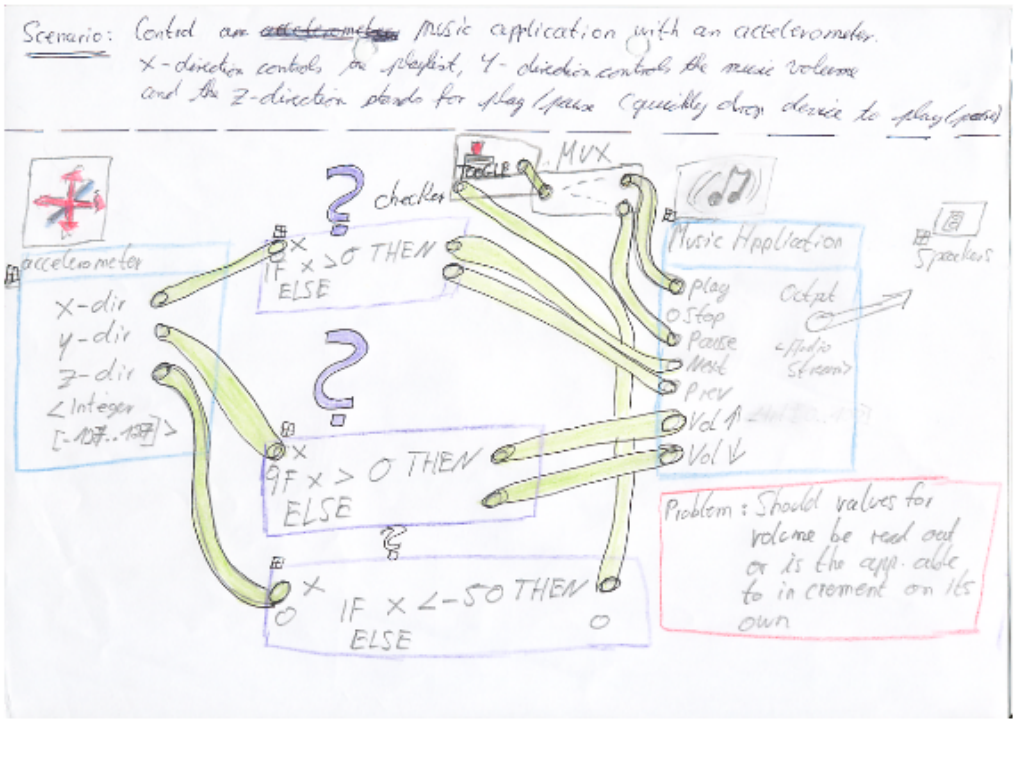 Scenario: Control an accelerometer Music application with an accelerometer.
X-direction controls the playlist, Y-direction controls the music volume
and the Z-direction stands for play/pause (quickly drop device to play/pause)
TOGGLE
MUX
checker
?
accelerometer
X-dir
y-dir
z-dir
<Integer
[-127..127]>
X
IF X > 0 THEN
ELSE
?
X
IF X > 0 THEN
ELSE
?
X
IF X <-50 THEN
ELSE
Music Application
play
Stop
Pause
Next
Prev
Vol ↑
Vol ↓
Output
<Audio
Stream>
Speakers
Problem: Should values for
volume be read out
or is the app. able
to increment on its
own